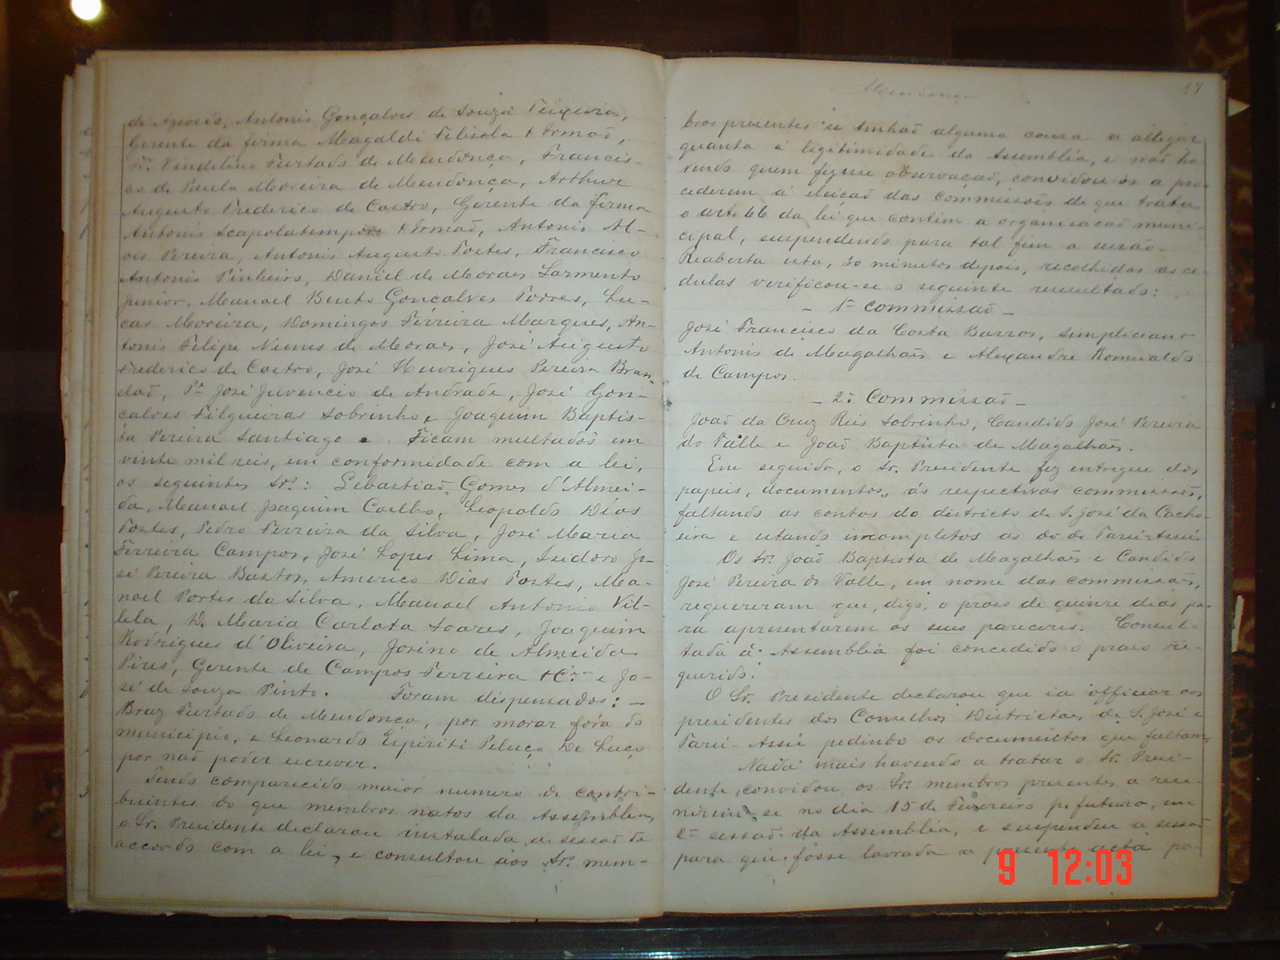 de Azevedo, Antonio Gonçalves de Souza Teixeira,
Gerente da firma Magaldi Felisola & Irmaõ,
Dr. Vindelino Furtado de Mendonça, Francis-
co de Paula Moreira de Mendonça, Arthur
Augusto Frederico de Castro, Gerente da firma
Antonio Scapolatempore & Irmaõ, Antonio Al-
ves Pereira, Antonio Augusto Portes, Francisco
Antonio Pinheiro, Daniel de Moraes Sarmento
Junior, Manoel Bento Gonçalves Torres, Lu-
cas Moreira, Domingos Ferreira Marques, An-
tonio Felipe Nunes de Moraes, José Augusto
Frederico de Castro, José Henriques Pereira Bran-
daõ, Dr. José Juvencio de Andrade, José Gon-
calves Filgueiras Sobrinho e Joaquim Baptis-
ta Pereira Santiago. Ficam multados em
vinte mil reis, em conformidade com a lei,
os seguintes Srs: Sebastiaõ Gomes d'Almei-
da, Manoel Joaquim Coelho, Leopoldo Dias
Portes, Pedro Ferreira da Silva, José Maria
Ferreira Campos, José Lopes Lima, Isidoro Jo-
sé Pereira Bastos, Americo Dias Portes, Ma-
noel Portes da Silva, Manoel Antonio Vil-
lela, D. Maria Carlota Soares, Joaquim
Rodrigues d'Oliveira, Josino de Almeida
Pires, Gerente de Campos Ferreira & Ca. e Jo-
sé de Souza Pinto. Foram dispensados: -
Braz Furtado de Mendonça, por morar fora do
municipio, e Leonardo Espiriti Peluço De Luca
por naõ poder escrever.
Tendo comparecido maior numero de contri-
buintes do que membros natos da Assemblea,
o Sr. Presidente declarou installada a sessaõ de
accordo com a lei, e consultou aos Srs. mem-
Mendonça
17
bros presentes se tinhaõ alguma cousa a allegar
quanto á legitimidade da Assemblia, e naõ ha-
vendo quem fizesse observaçaõ, convidou-os a pro-
cederem á eleiçaõ das commissões de que trata
o art. 66 da lei que contem a organisaçaõ muni-
cipal, suspendendo para tal fim a sessaõ.
Reaberta esta, 30 minutos depois, recolhidas as ce-
dulas verificou-se o seguinte resultado:
- 1ª commissaõ -
José Francisco da Costa Barros, Simpliciano
Antonio de Magalhães e Alexandre Romualdo
de Campos.
- 2ª Commissaõ -
Joaõ da Cruz Reis Sobrinho, Candido José Pereira
do Valle e Joaõ Baptista de Magalhães.
Em seguida, o Sr. Presidente fez entrega dos
papeis, documentos, ás respectivas commissões,
faltando as contas do districto de S. José da Cacho-
eira e estando incompletos as do de Tarú-Assú.
Os Srs. Joaõ Baptista de Magalhães e Candido
José Pereira do Valle, em nome das commissões,
requereram que, digo, o praso de quinze dias pa-
ra apresentarem os seus pareceres. Consul-
tada a Assemblia foi concedido o praso re-
querido.
O Sr. Presidente declarou que ia officiar aos
presidentes dos Conselhos Districtaes de S. José e
Tarú-Assú pedindo os documentos que faltam.
Nada mais havendo a tratar o Sr. Presi-
dente, convidou os Srs. membros presentes a reu-
nirem-se no dia 15 de Fevereiro p. futuro, em
2ª sessaõ da Assemblia, e suspendeu a sessaõ
para que fosse lavrada a presente acta pa-
9 12:03